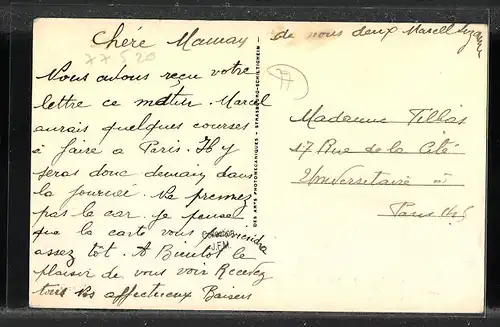 Chére Maman - de nous deux Marcel Suzanne
XX520
Nous avons reçu votre
lettre ce matin. Marcel
aurais quelques courses
à faire a Paris. Il y
seras donc demain dans
la journeé. Ne premez
pas le car. je pense
que la carte vous
assez tôt. A Bientôt le
plaisir de vous voir Recevez
tous nos affectueux Baisers
DES ARTS PHOTOMECANIQUES - STRASBOURG-SCHILTIGHEIM
J.F.M.
Madame
17 Rue de la Cité
Universitaire à
Paris 14e